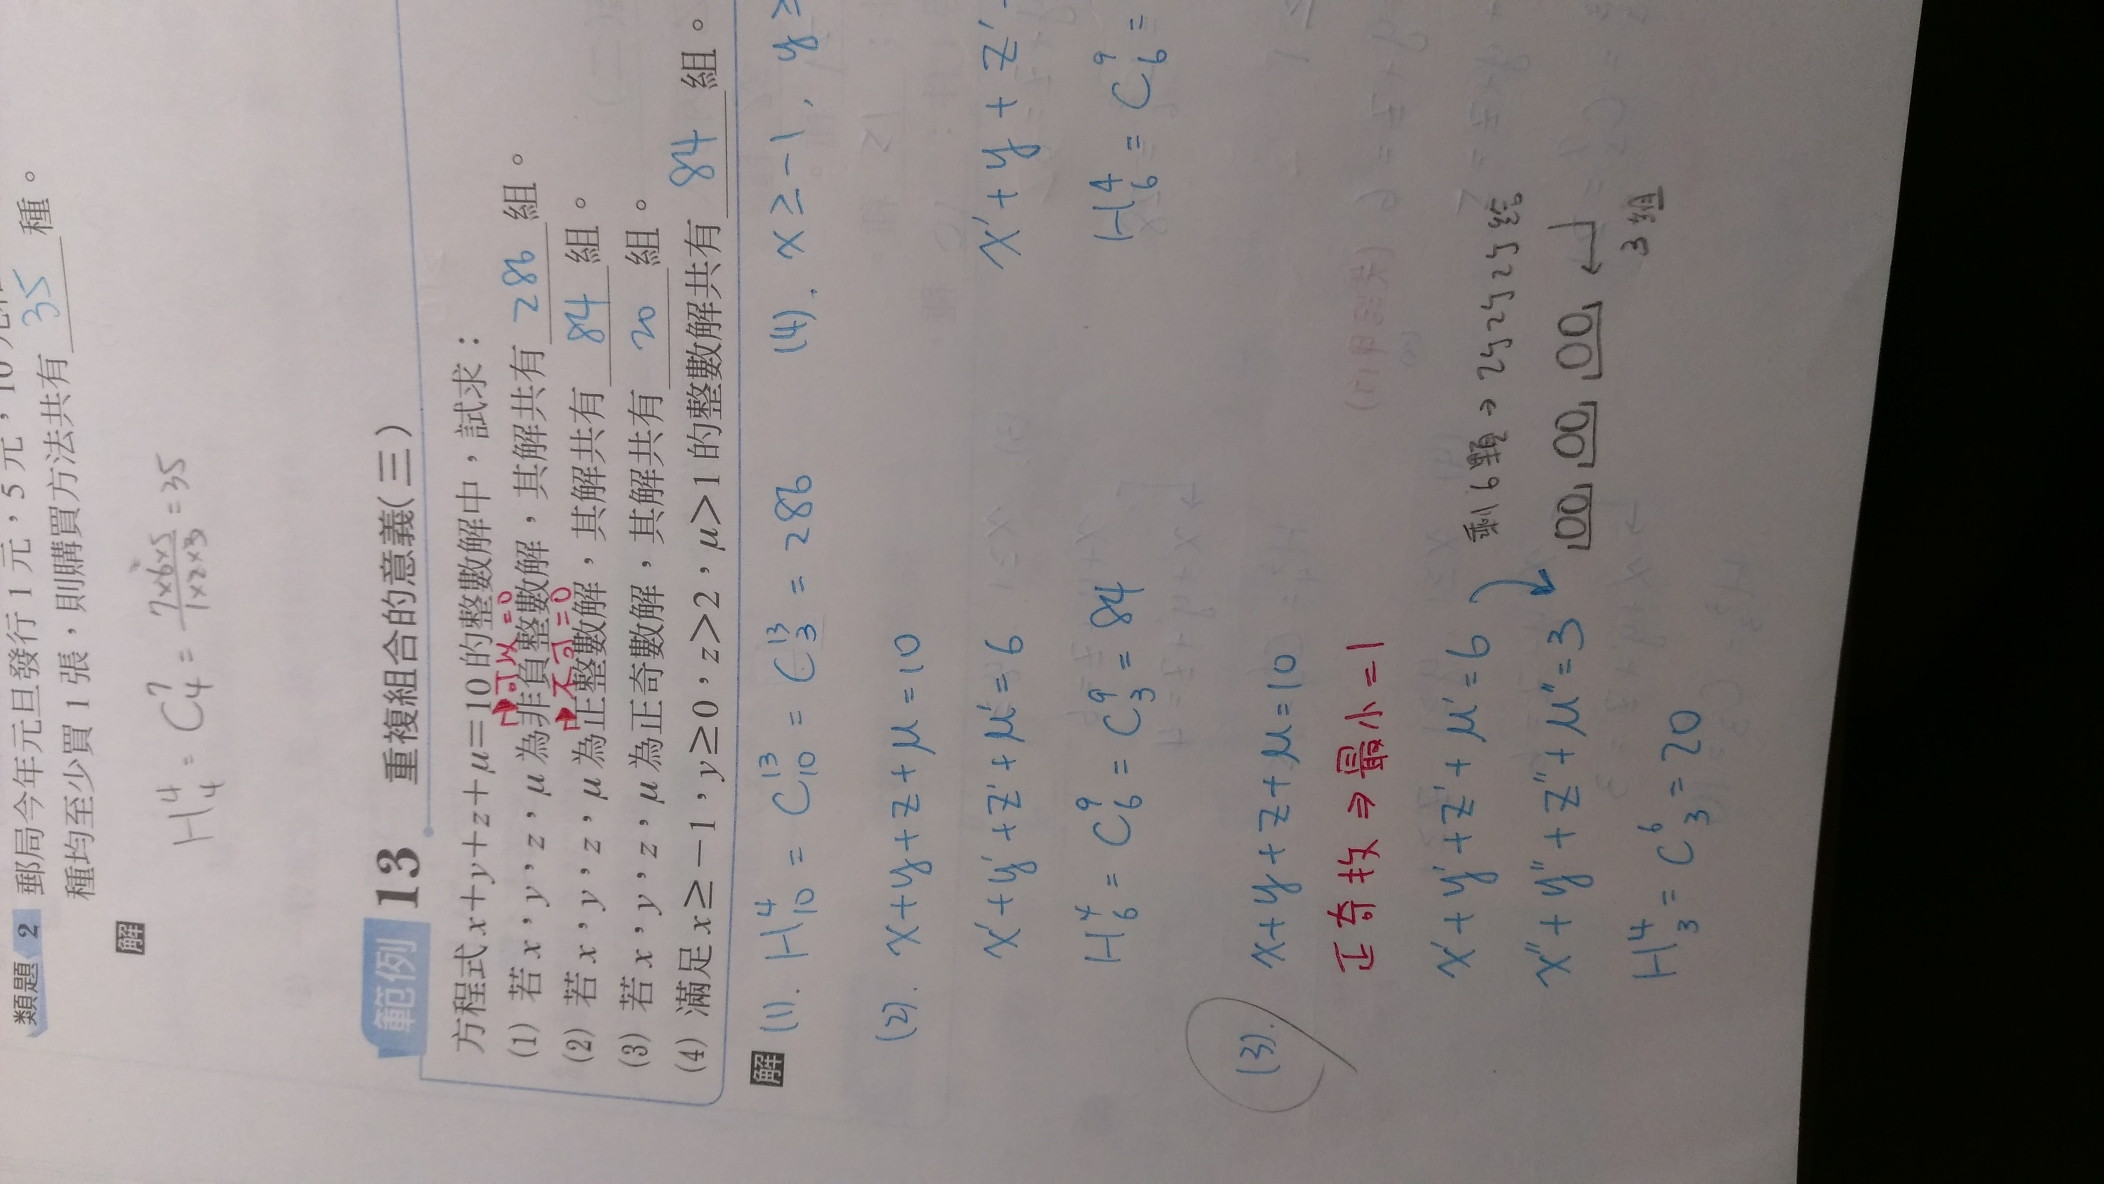 類題 2 郵局今年元旦發行 1 元，5 元，10 元
種均至少買 1 張，則購買方法共有 35 種。
解
H⁴₄ = C⁷₄ = 7×6×5/1×2×3 = 35
範例 13 重複組合的意義(三)
方程式 x+y+z+μ=10 的整數解中，試求：
可以=0
(1) 若 x，y，z，μ 為非負整數解，其解共有 286 組。
不可=0
(2) 若 x，y，z，μ 為正整數解，其解共有 84 組。
(3) 若 x，y，z，μ 為正奇數解，其解共有 20 組。
(4) 滿足 x≥−1，y≥0，z>2，μ>1 的整數解共有 84 組。
解 (1). H⁴₁₀ = C¹³₁₀ = C¹³₃ = 286
(2). x+y+z+μ=10
x'+y'+z'+μ'=6
H⁴₆ = C⁹₆ = C⁹₃ = 84
(3). x+y+z+μ=10
正奇數 ⇒ 最小=1
x'+y'+z'+μ'=6
剩6顆→2個2個給
x''+y''+z''+μ''=3
00 00 00
3組
H⁴₃ = C⁶₃ = 20
(4). x≥−1, y≥
x'+y+z'
H⁴₆ = C⁹₆ =